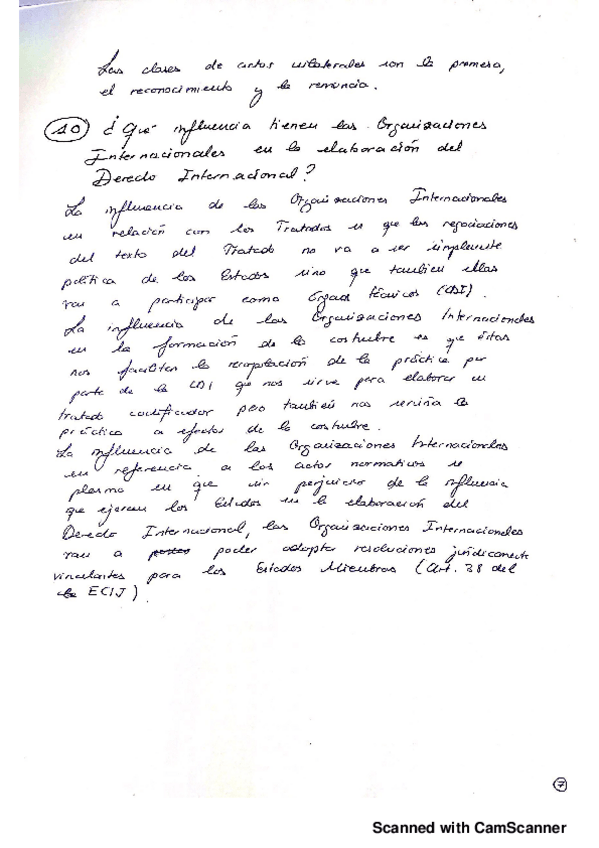 Las clases de actos unilaterales son la promesa,
el reconocimiento y la renuncia.
10) ¿Qué influencia tienen las Organizaciones
Internacionales en la elaboración del
Derecho Internacional?
La influencia de las Organizaciones Internacionales
en relación con los Tratados es que las negociaciones
del texto del Tratado no va a ser simplemente
política de los Estados sino que también ellas
van a participar como órgano técnicos (CDI).
La influencia de las Organizaciones Internacionales
en la formación de la costumbre es que éstas
nos facilitan la recopilación de la práctica por
parte de la CDI que nos sirve para elaborar un
tratado codificador pero también nos serviría la
práctica a efectos de la costumbre.
La influencia de las Organizaciones Internacionales
en referencia a los actos normativos se
plasma en que sin perjuicio de la influencia
que ejercen los Estados en la elaboración del
Derecho Internacional, las Organizaciones Internacionales
van a poder adoptar resoluciones jurídicamente
vinculantes para los Estados Miembros (Art. 38 del
ECIJ)
7
Scanned with CamScanner